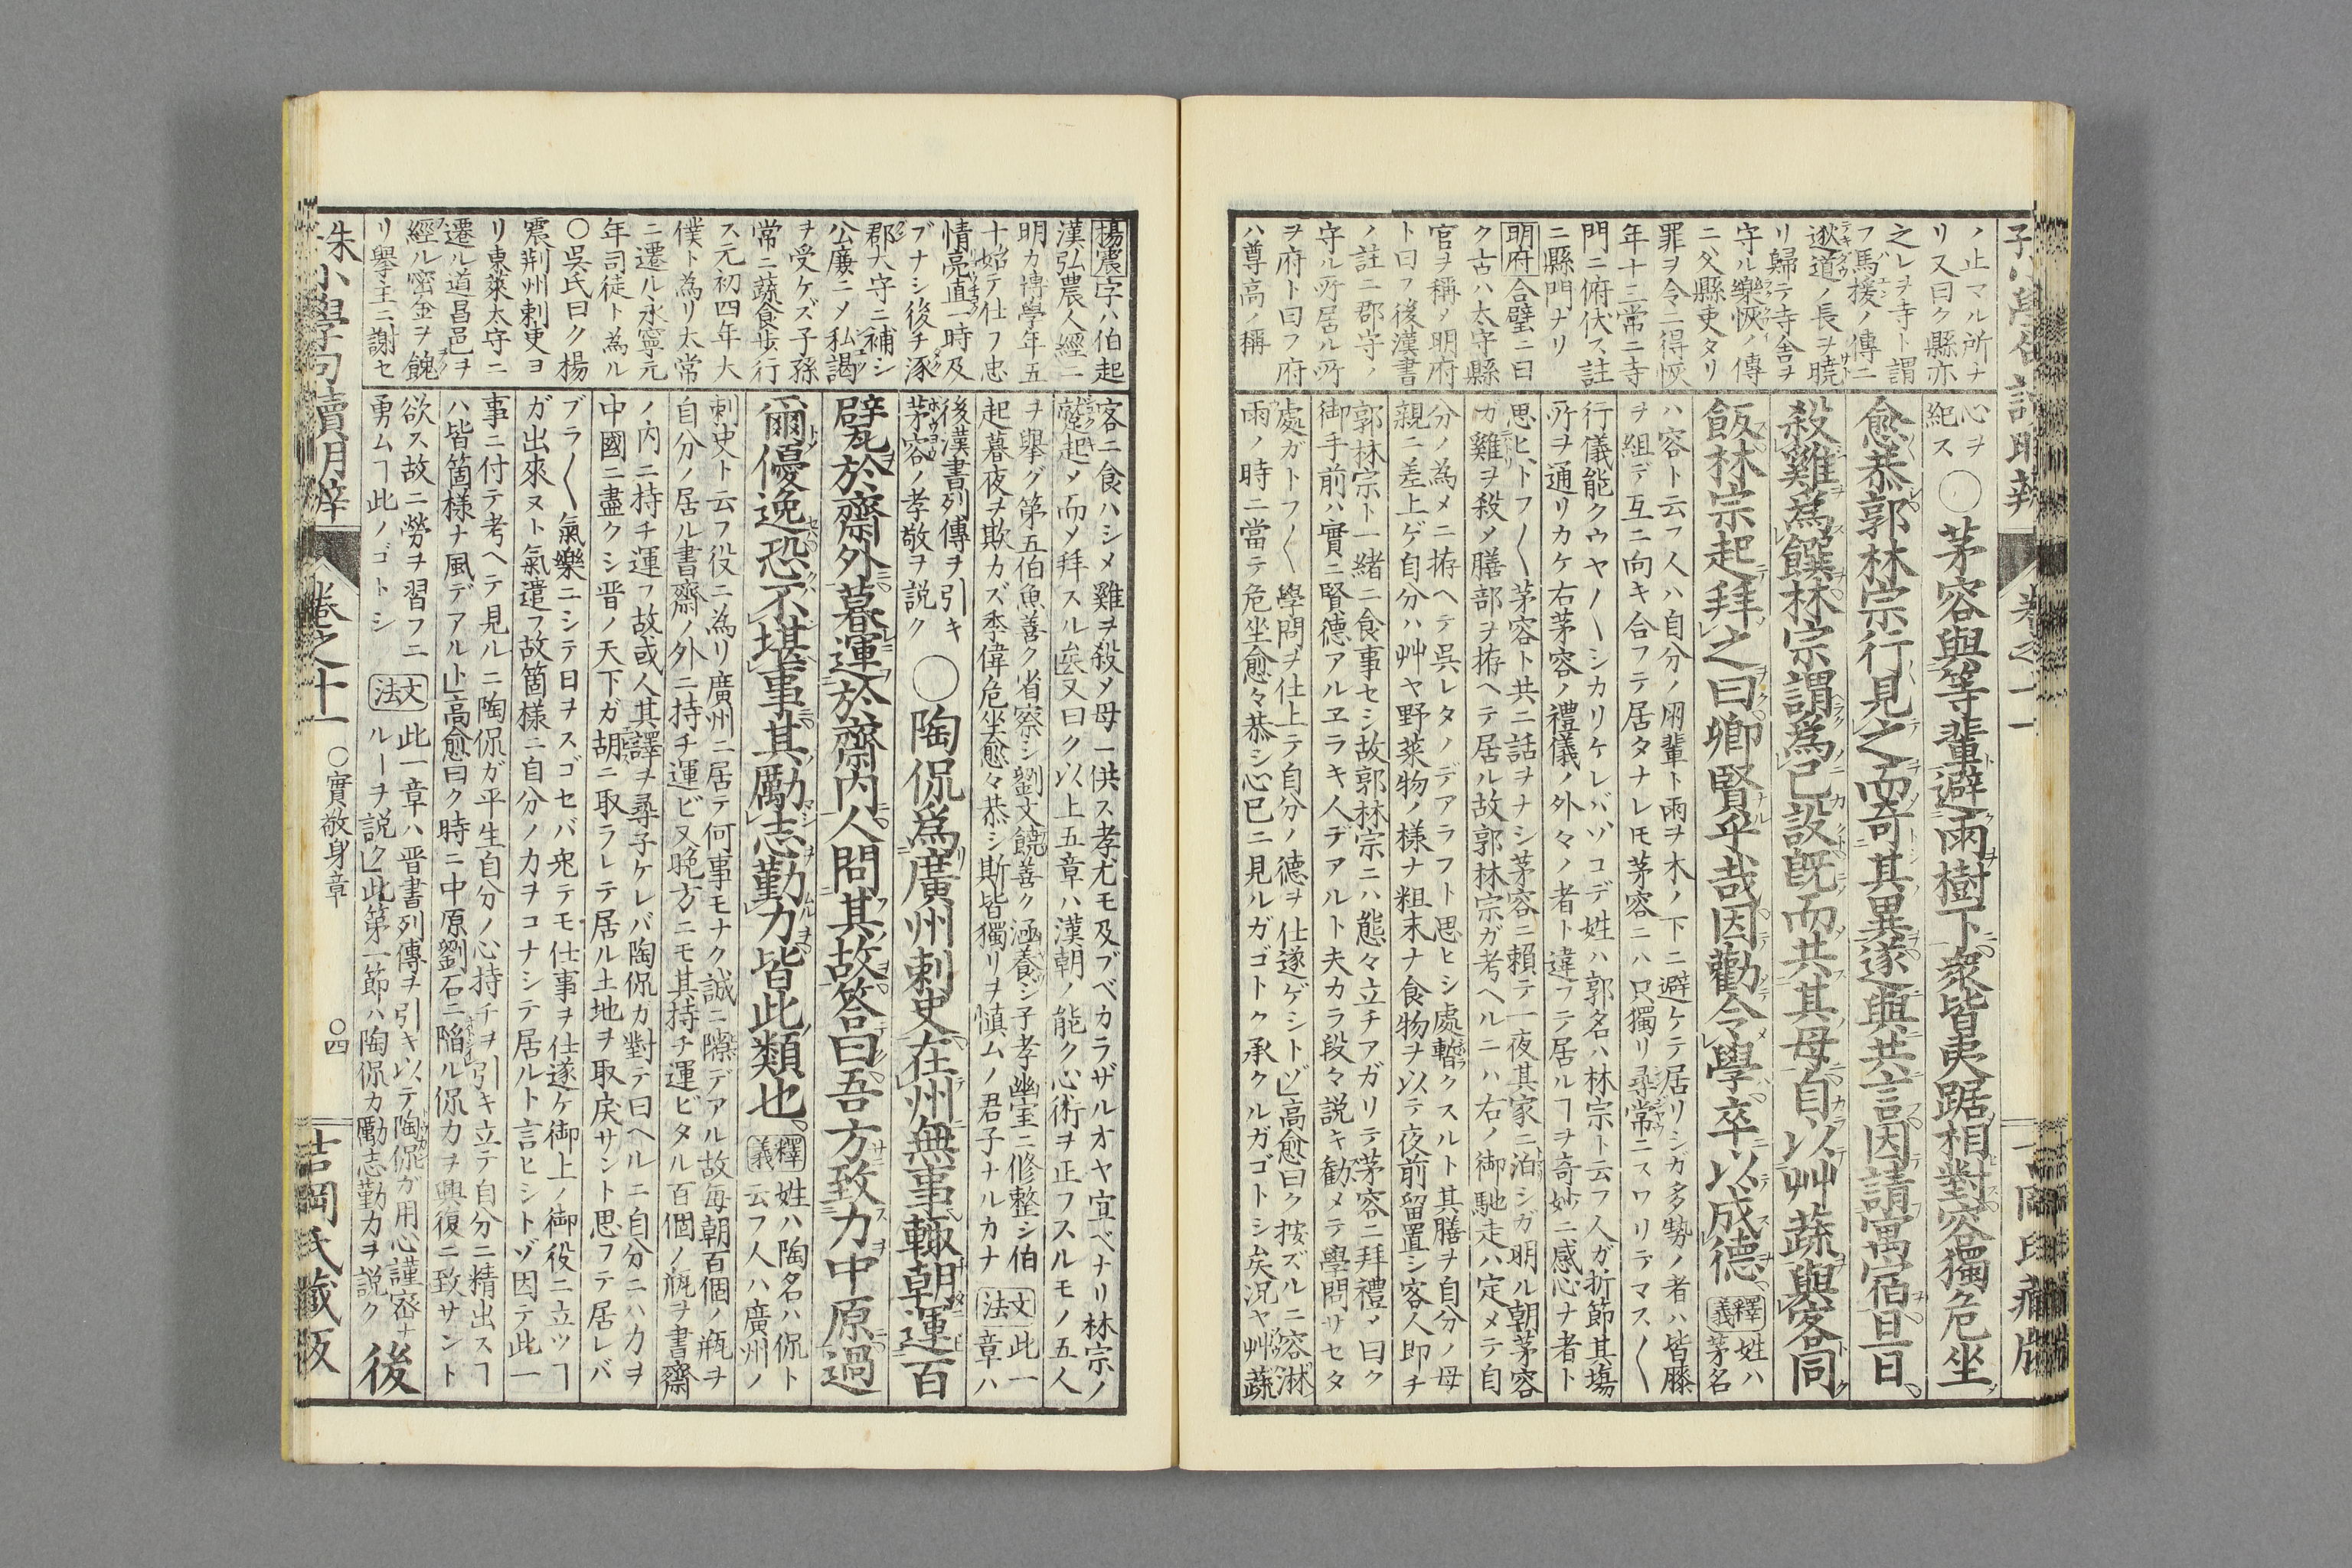 ノ止マル所ナ
リ又曰ク縣亦
之レヲ寺ト謂
フ馬援ノ傳ニ
逖道ノ長ヲ曉
リ歸テ寺舎ヲ
守ル樂恢ノ傳
ニ父縣吏タリ
罪ヲ令ニ得恢
年十三常ニ寺
門ニ俯伏ス註
ニ縣門ナリ
明府合璧ニ曰
ク古ハ太守縣
官ヲ稱ノ明府
ト曰フ後漢書
ノ註ニ郡守ノ
守ル所居ル所
ヲ府ト曰フ府
ハ尊高ノ稱
心ヲ
紀ス
○茅容與等輩避雨樹下衆皆夷踞相對容獨危坐
愈恭郭林宗行見之而奇其異遂與共言因請寓宿旦日
殺雞爲饌林宗謂爲己設既而共其母自以艸蔬與客同
飯林宗起拜之曰卿賢乎哉因勸令學卒以成德
釋義
姓ハ
茅名
ハ容ト云フ人ハ自分ノ朋輩ト雨ヲ木ノ下ニ避ケテ居リシガ多勢ノ者ハ皆膝
ヲ組デ互ニ向キ合フテ居タナレモ茅容ニハ只獨リ尋常ニスワリテマス〱
行儀能クウヤ〱シカリケレバソコデ姓ハ郭名ハ林宗ト云フ人ガ折節其塲
所ヲ通リカケ右茅容ノ禮儀ノ外々ノ者ト違フテ居ルヿヲ奇妙ニ感心ナ者ト
思ヒトフ〱茅容ト共ニ話ヲナシ茅容ニ賴テ一夜其家ニ泊シガ明ル朝茅容
カ雞ヲ殺メ膳部ヲ拵ヘテ居ル故郭林宗ガ考ヘルニハ右ノ御馳走ハ定メテ自
分ノ為メニ拵ヘテ呉レタノデアラフト思ヒシ處暫クスルト其膳ヲ自分ノ母
親ニ差上ゲ自分ハ艸ヤ野菜物ノ様ナ粗末ナ食物ヲ以テ夜前留置シ客人即チ
郭林宗ト一緒ニ食事セシ故郭林宗ニハ態々立チアガリテ茅容ニ拜禮メ曰ク
御手前ハ實ニ賢德アルヱラキ人ヂアルト夫カラ段々説キ勸メテ學問サセタ
處ガトフ〱學問ヲ仕上テ自分ノ德ヲ仕遂ゲシトゾ」高愈曰ク按ズルニ容淋
雨ノ時ニ當テ危坐愈々恭シ心已ニ見ルガゴトク承クルガゴトシ矣況ヤ艸蔬
楊震字ハ伯起
漢弘農人經ニ
明カ博學年五
十始テ仕フ忠
情亮直一時及
ブナシ後チ涿
郡太守ニ補シ
公廉ニメ私謁
ヲ受ケズ子孫
常ニ蔬食歩行
ス元初四年大
僕ト為リ太常
ニ遷ル永寧元
年司徒ト為ル
○吳氏曰ク楊
震荊州刺吏ヨ
リ東萊太守ニ
遷ル道昌邑ヲ
經ル密金ヲ餽
リ擧主ニ謝セ
客ニ食ハシメ雞ヲ殺メ母ニ供ス孝尤モ及ブベカラザルオヤ宜ベナリ林宗ノ
蹙起メ而メ拜スル矣」又曰ク以上五章ハ漢朝ノ能ク心術ヲ正フスルモノ五人
ヲ擧グ第五伯魚善ク省察シ劉文饒善ク涵養シ子孝幽室ニ修整シ伯
起暮夜ヲ欺カズ季偉危坐愈々恭シ斯皆獨リヲ愼ムノ君子ナルカナ
文法
此一
章ハ
後漢書列傳ヲ引キ
茅容ノ孝敬ヲ説ク
○陶侃爲廣州刺史在州無事輙朝運百
甓於齋外暮運於齋内人問其故答曰吾方致力中原過
爾優逸恐不堪事其勵志勤力皆此類也
釋義
姓ハ陶名ハ侃ト
云フ人ハ廣州ノ
刺史ト云フ役ニ為リ廣州ニ居テ何事モナク誠ニ隙デアル故毎朝百個ノ瓶ヲ
自分ノ居ル書齋ノ外ニ持チ運ビ又晩方ニモ其持チ運ビタル百個ノ瓶ヲ書齋
ノ内ニ持チ運フ故或人其譯ヲ尋子ケレバ陶侃カ對テ曰ヘルニ自分ニハ力ヲ
中國ニ盡クシ晋ノ天下ガ胡ニ取ラレテ居ル土地ヲ取戾サント思フテ居レバ
ブラ〱氣樂ニシテ日ヲスゴセバ兊テモ仕事ヲ仕遂ケ御上ノ御役ニ立ツヿ
ガ出來ヌト氣遣フ故箇樣ニ自分ノ力ヲコナシテ居ルト言ヒシトゾ因テ此一
事ニ付テ考ヘテ見ルニ陶侃ガ平生自分ノ心持チヲ引キ立テ自分ニ精出スヿ
ハ皆箇様ナ風デアルト」高愈曰ク時ニ中原劉石ニ陥ル侃力ヲ興復ニ致サント
欲ス故ニ勞ヲ習フニ
勇ムヿ此ノゴトシ
文法
此一章ハ晋書列傳ヲ引キ以テ陶侃ガ用心謹密ナ
ルーヲ説ク」此第一節ハ陶侃カ勵志勤力ヲ説ク
後
卷之十一
○實敬身章
○四
吉岡氏藏版